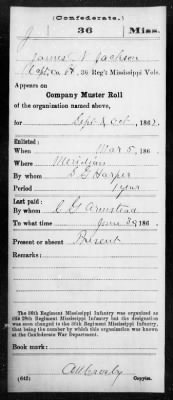 (Confederate.)
J 36 Miss.
James V Jackson
Capt, Co. , 36 Reg't Mississippi Vols.
Appears on
Company Muster Roll
of the organization named above,
for Sept & Oct, 1862.
Enlisted:
When Mar 5, 186 .
Where Meridian
By whom S G Harper
Period 1 year
Last paid:
By whom C G Armstead
To what time June 30, 186 .
Present or absent Present
Remarks:
The 36th Regiment Mississippi Infantry was organized as
the 28th Regiment Mississippi Infantry but the designation
was soon changed to the 36th Regiment Mississippi Infantry,
that being the number by which this regiment was known at the
Confederate War Department.
Book mark:
(642) Copyist.